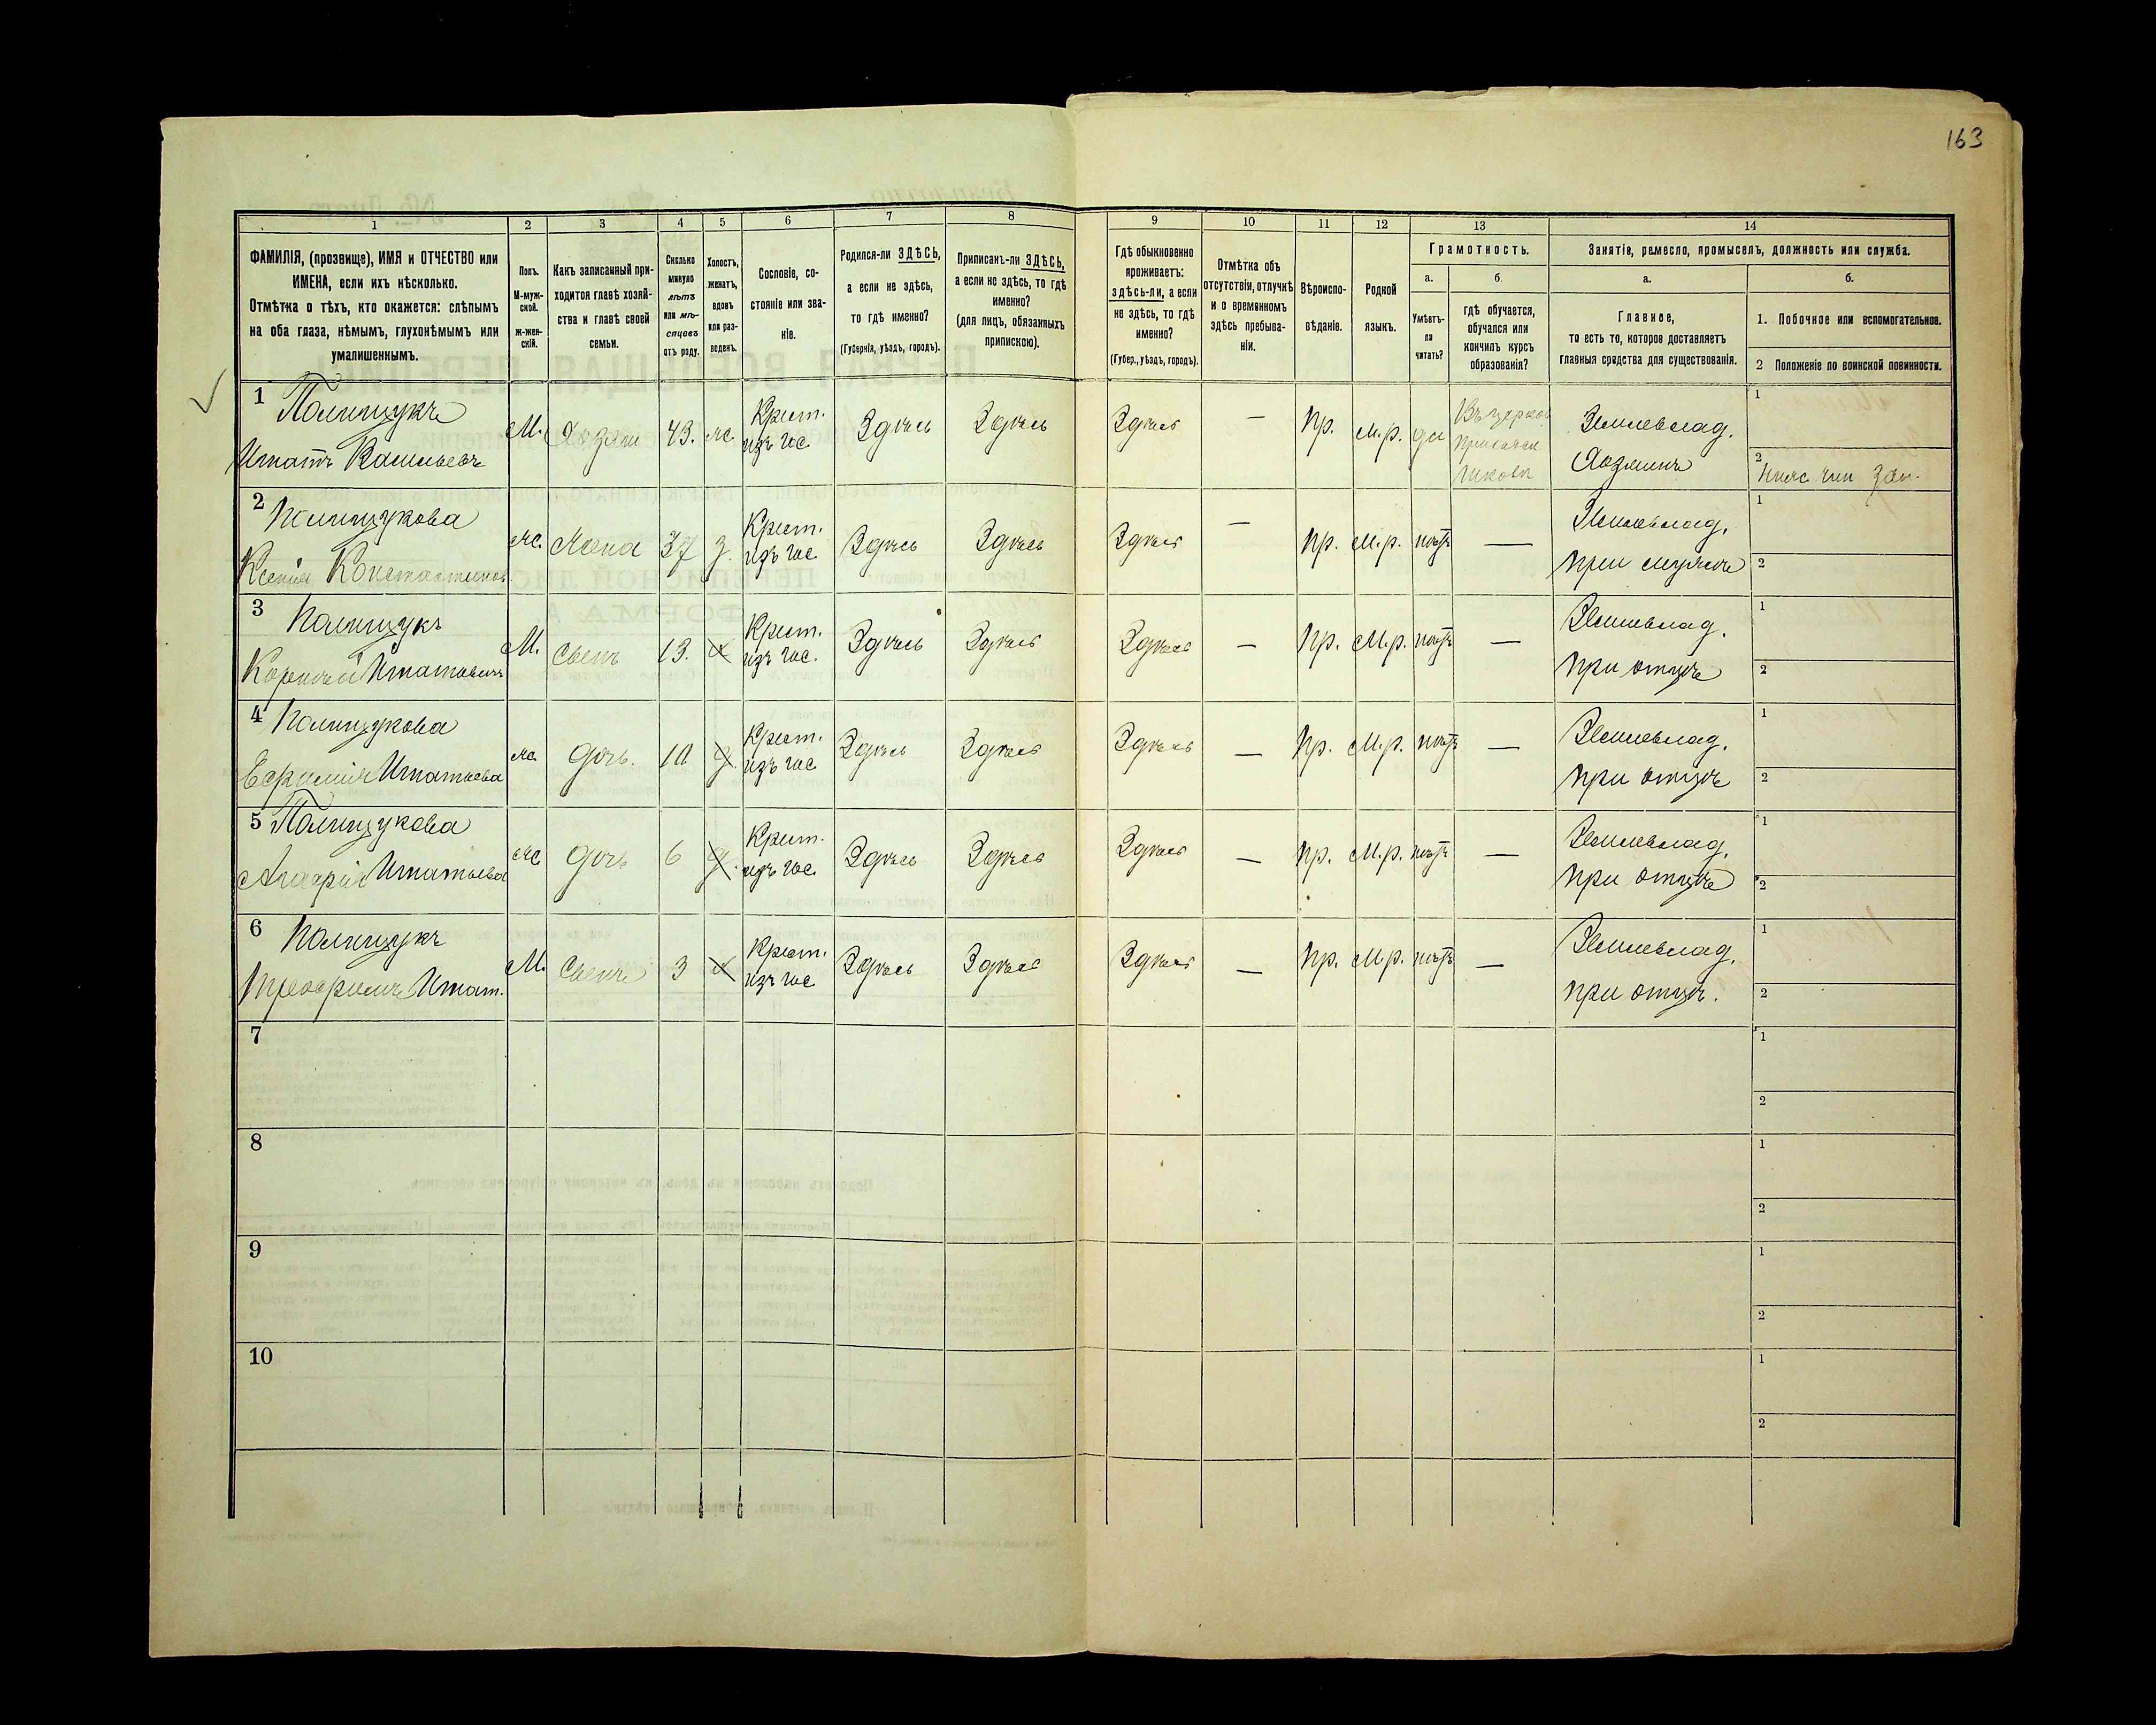 163
1
2
3
4
5
6
7
8
9
10
11
12
13
14
ФАМИЛІЯ, (прозвище), ИМЯ и ОТЧЕСТВО или
ИМЕНА, если ихъ нѣсколько.
Отмѣтка о тѣхъ, кто окажется: слѣпымъ
на оба глаза, нѣмымъ, глухонѣмымъ или
умалишеннымъ.
Полъ.
М-муж-
ской.
ж-жен-
скій.
Какъ записанный при-
ходится главѣ хозяй-
ства и главѣ своей
семьи.
Сколько
минуло
лѣтъ
или мѣ-
сяцевъ
отъ роду.
Холостъ,
женатъ,
вдовъ
или раз-
веденъ.
Сословіе, со-
стояніе или зва-
ніе.
Родился-ли ЗДѢСЬ,
а если не здѣсь,
то гдѣ именно?
(Губернія, уѣздъ, городъ).
Приписанъ-ли ЗДѢСЬ,
а если не здѣсь, то гдѣ
именно?
(для лицъ, обязанныхъ
припискою).
Гдѣ обыкновенно
проживаетъ:
здѣсь-ли, а если
не здѣсь, то гдѣ
именно?
(Губер., уѣздъ, городъ).
Отмѣтка объ
отсутствіи, отлучкѣ
и о временномъ
здѣсь пребыва-
ніи.
Вѣроиспо-
вѣданіе.
Родной
языкъ.
Грамотность.
а.
Умѣетъ-
ли
читать?
б.
гдѣ обучается,
обучался или
кончилъ курсъ
образованія?
Занятіе, ремесло, промыселъ, должность или служба.
а.
Главное,
то есть то, которое доставляетъ
главныя средства для существованія.
б.
1. Побочное или вспомогательное.
2 Положеніе по воинской повинности.
1 Полищукъ
Игнатъ Васильевъ
М. Хозяин 43. ж. Крест. изъ гос Здѣсь Здѣсь
Здѣсь — Пр. М.р. да
Въ церков
школѣ
Землевлад.
Хозяинъ
1
2
2 Полищукова
Ксенія Константинов.
ж. Жена 37 з. Крест. изъ гос Здѣсь Здѣсь
Здѣсь — Пр. М.р. нѣтъ —
Землевлад.
при мужѣ
1
2
3 Полищукъ
Корнилій Игнатовичъ
М. Сынъ 13. х Крест. изъ гос. Здѣсь Здѣсь
Здѣсь — Пр. М.р. нѣтъ —
Землевлад.
при отцѣ
1
2
4 Полищукова
Игнатьева
ж. дочь. 10 д. Крест. изъ гос Здѣсь Здѣсь
Здѣсь — Пр. М.р. нѣтъ —
Землевлад.
при отцѣ
1
2
5 Полищукова
Агафія Игнатьева
ж дочь 6 д. Крест. изъ гос. Здѣсь Здѣсь
Здѣсь — Пр. М.р. нѣтъ —
Землевлад.
при отцѣ
1
2
6 Полищукъ
Игнат.
М. Сынъ 3 х Крест. изъ гос Здѣсь Здѣсь
Здѣсь — Пр. М.р. нѣтъ —
Землевлад.
при отцѣ.
1
2
7
1
2
8
1
2
9
1
2
10
1
2